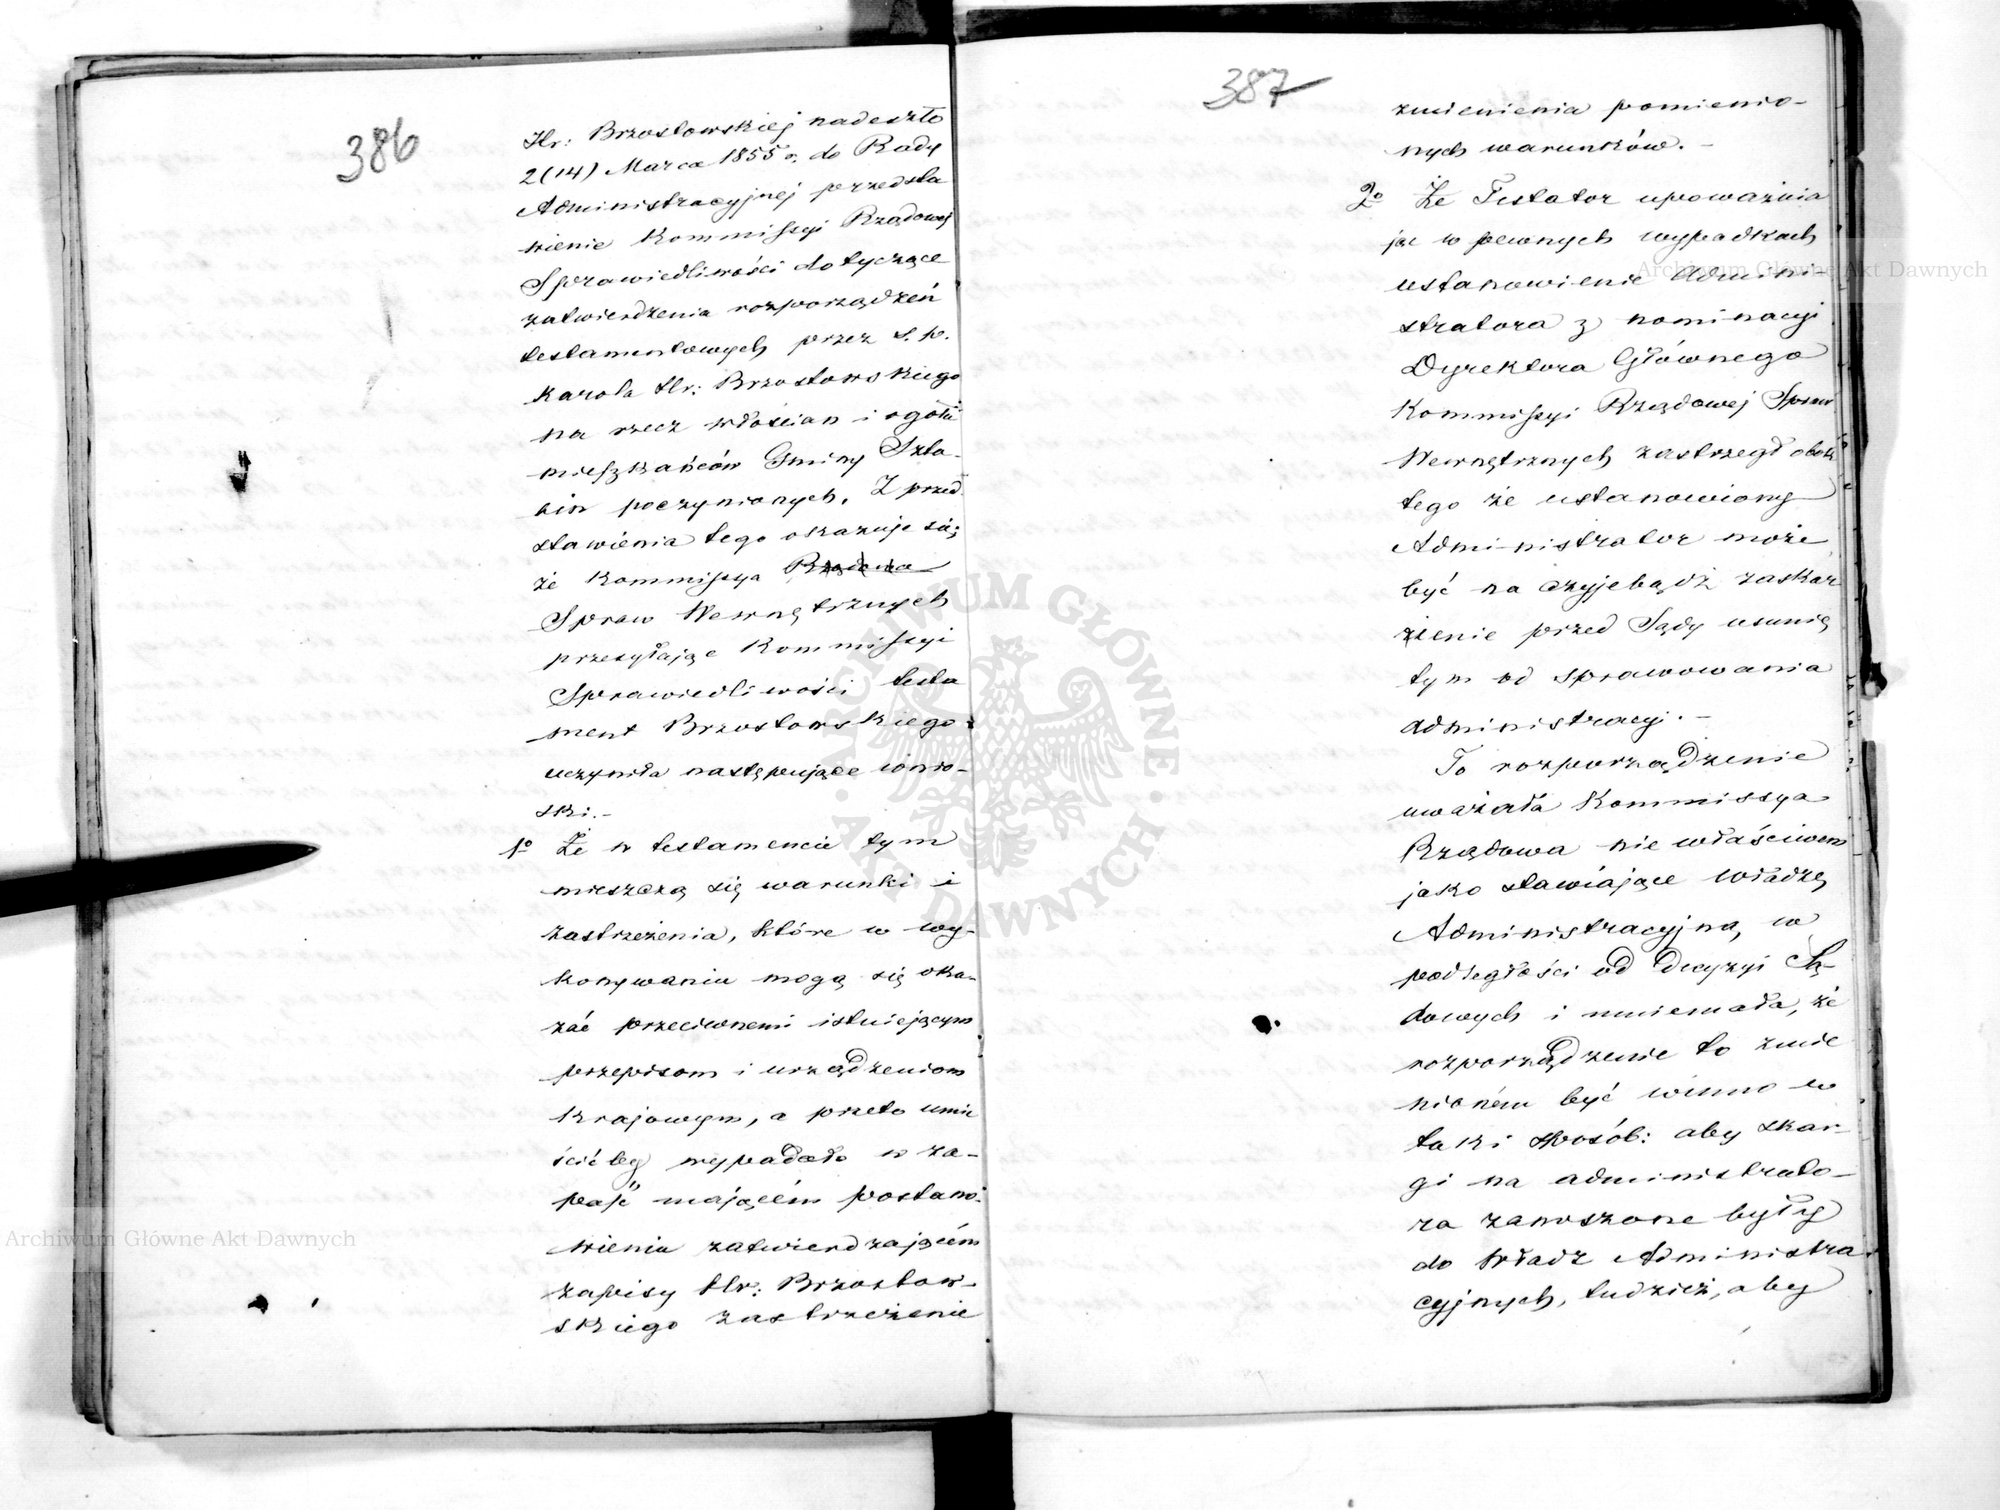 386
Hr: Brzostowskiej nadeszło
2(14) Marca 1855 r. do Rady
Administracyjnej przedsta
wienie Kommissyi Rządowej
Sprawiedliwości dotyczące
zatwierdzenia rozporządzeń
testamentowych przez s. p.
Karola Hr: Brzostowskiego
na rzecz włościan i ogółu
mieszkańców Gminy Szta-
bin poczynionych. Z przed
stawienia tego okazuje się;
że Kommissya Rządowa
Spraw Wewnętrznych
przesyłając Kommissyi
Sprawiedliwości testa
ment Brzostowskiego
uczyniła następujące wnio-
ski.-
1o Że w testamencie tym
mieszczą się warunki i
zastrzeżenia, które w wy-
konywaniu mogą się oka-
zać przeciwnemi istniejącym
przepisom i urządzeniom
krajowym, a przeto umie
ścić by wypadało w za-
paść mającém postano-
wieniu zatwierdzającém
zapisy Hr: Brzostow-
skiego zastrzeżenie
387
zmienienia pomienio-
nych warunków. -
2o Że Testator upoważnia
jąc w pewnych wypadkach
ustanowienie Admini-
stratora z nominacyi
Dyrektora Głównego
Kommissyi Rządowej Spraw
Wewnętrznych zastrzegł obok
tego że ustanowiony
Administrator może
być na czyjebądź zaskar
żenie przed Sądy usunię
tym od sprawowania
administracyi. -
To rozporządzenie
uważała Kommissya
Rządowa nie właściwem
jako stawiające władzę
Administracyjną w
podległości od Decyzyi Są-
dowych i mniemała, że
rozporządzenie to zmie
nioném być winno w
taki sposób: aby skar-
gi na administrato-
ra zanoszone były
do Władz Administra
cyjnych, tudzież, aby
Archiwum Główne Akt Dawnych
Archiwum Główne Akt Dawnych
ARCHIWUM GŁÓWNE · AKT DAWNYCH ·